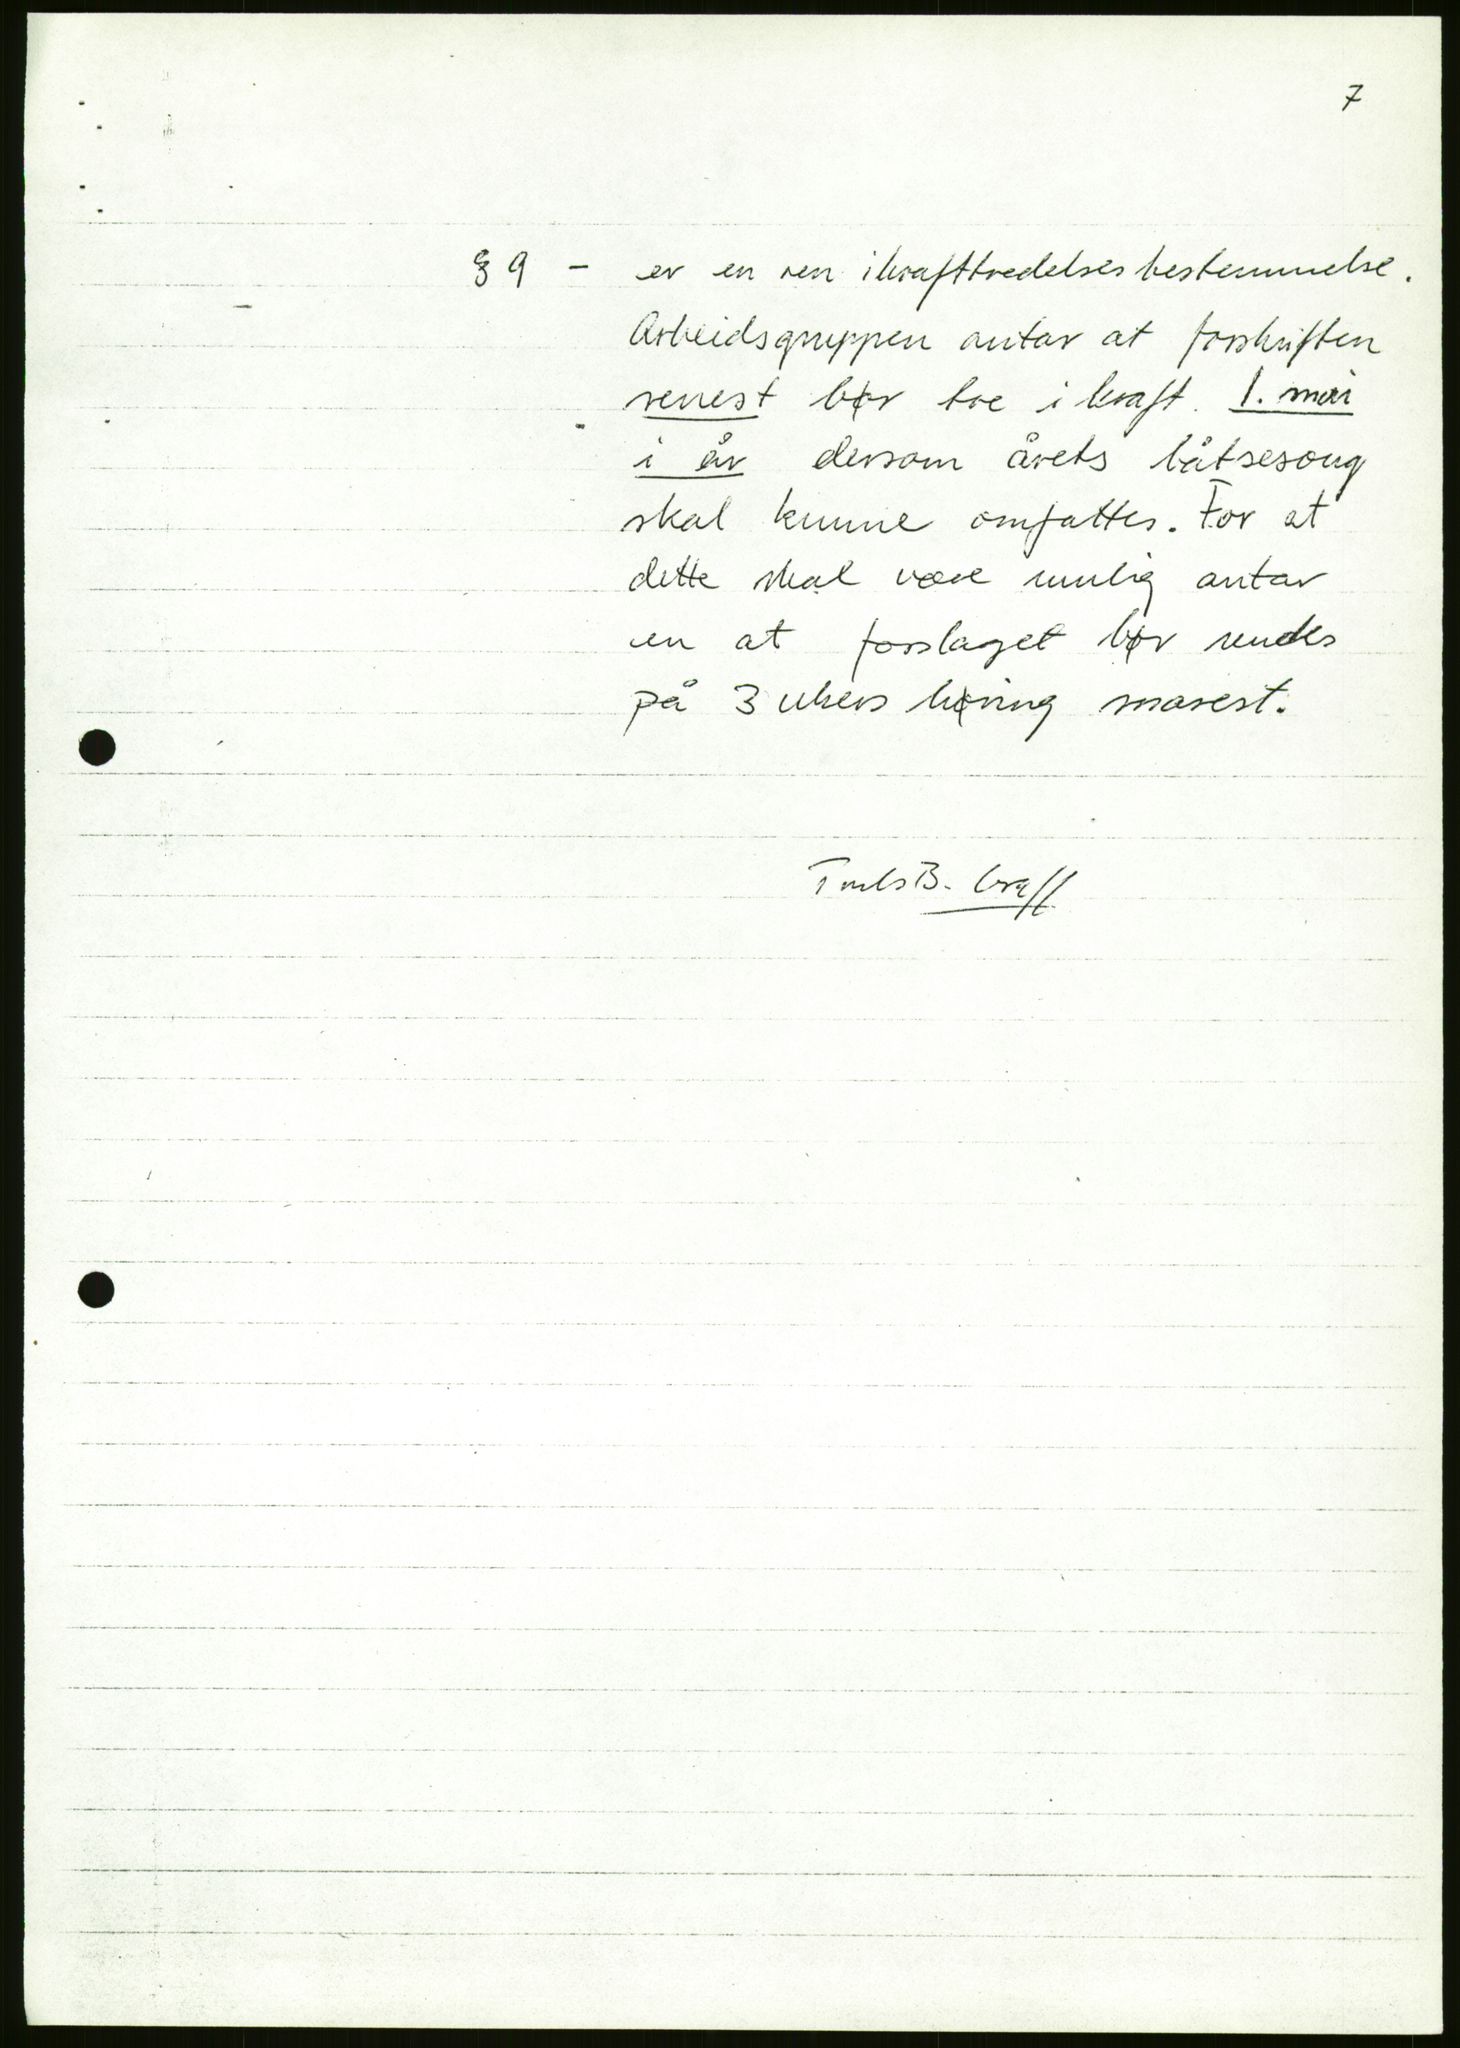 7
§ 9 - er en ren ikrafttredelsesbestemmelse.
Arbeidsgruppen antar at forskriften
senest bør tre i kraft. 1. mai
i år dersom årets båtsesong
skal kunne omfattes. For at
dette skal være mulig antar
en at forslaget bør sendes
på 3 ukers høring snarest.
B.